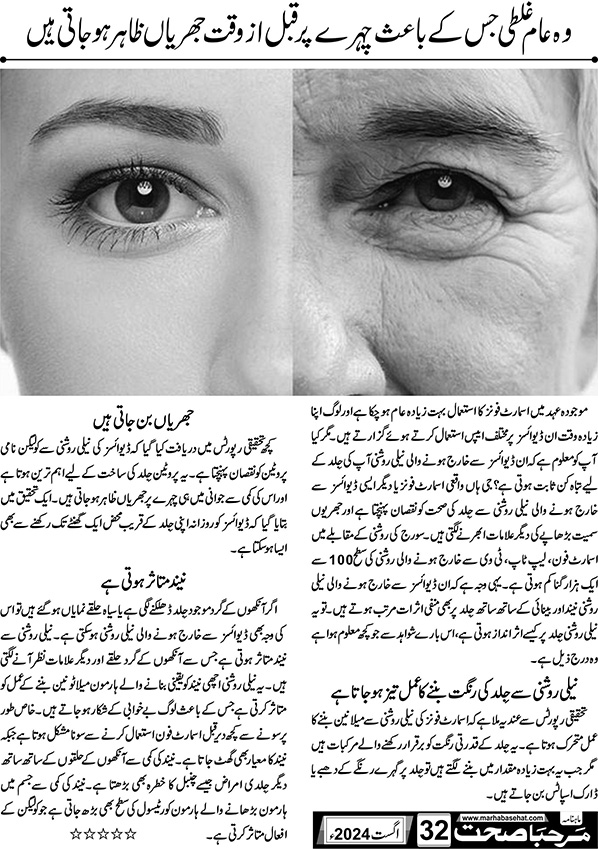 وہ عام غلطی جس کے باعث چہرے پر قبل از وقت جھریاں ظاہر ہو جاتی ہیں
موجودہ عہد میں اسمارٹ فونز کا استعمال بہت زیادہ عام ہو چکا ہے اور لوگ اپنا
زیادہ وقت ان ڈیوائسز پر مختلف ایپس استعمال کرتے ہوئے گزارتے ہیں۔ مگر کیا
آپ کو معلوم ہے کہ ان ڈیوائسز سے خارج ہونے والی نیلی روشنی آپ کی جلد کے
لیے تباہ کن ثابت ہوتی ہے؟ جی ہاں واقعی اسمارٹ فونز یا دیگر ایسی ڈیوائسز سے
خارج ہونے والی نیلی روشنی سے جلد کی صحت کو نقصان پہنچتا ہے اور جھریوں
سمیت بڑھاپے کی دیگر علامات ابھرنے لگتی ہیں۔ سورج کی روشنی کے مقابلے میں
اسمارٹ فون، لیپ ٹاپ، ٹی وی سے خارج ہونے والی روشنی کی سطح 100 سے
ایک ہزار گنا کم ہوتی ہے۔ یہی وجہ ہے کہ ان ڈیوائسز سے خارج ہونے والی نیلی
روشنی نیند اور بینائی کے ساتھ ساتھ جلد پر بھی منفی اثرات مرتب ہوتے ہیں۔ تو یہ
نیلی روشنی جلد پر کیسے اثر انداز ہوتی ہے، اس بارے شواہد سے جو کچھ معلوم ہوا ہے
وہ درج ذیل ہے۔
نیلی روشنی سے جلد کی رنگت بننے کا عمل تیز ہو جاتا ہے
تحقیقی رپورٹس سے عندیہ ملا ہے کہ اسمارٹ فونز کی نیلی روشنی سے میلانین بننے کا
عمل متحرک ہوتا ہے۔ یہ جلد کے قدرتی رنگت کو برقرار رکھنے والے مرکبات ہیں
مگر جب یہ بہت زیادہ مقدار میں بننے لگتے ہیں تو جلد پر گہرے رنگے کے دھبے یا
ڈارک اسپاٹس بن جاتے ہیں۔
جھریاں بن جاتی ہیں
کچھ تحقیقی رپورٹس میں دریافت کیا گیا کہ ڈیوائسز کی نیلی روشنی سے کولیگن نامی
پروٹین کو نقصان پہنچتا ہے۔ یہ پروٹین جلد کی ساخت کے لیے اہم ترین ہوتا ہے
اور اس کی کمی سے جوانی میں ہی چہرے پر جھریاں ظاہر ہو جاتی ہیں۔ ایک تحقیق میں
بتایا گیا کہ ڈیوائسز کو روزانہ اپنی جلد کے قریب محض ایک گھنٹے تک رکھنے سے بھی
ایسا ہو سکتا ہے۔
نیند متاثر ہوتی ہے
اگر آنکھوں کے گرد موجود جلد ڈھلکنے لگی ہے یا سیاہ حلقے نمایاں ہو گئے ہیں تو اس
کی وجہ بھی ڈیوائسز سے خارج ہونے والی نیلی روشنی ہو سکتی ہے۔ نیلی روشنی سے
نیند متاثر ہوتی ہے جس سے آنکھوں کے گرد حلقے اور دیگر علامات نظر آنے لگتی
ہیں۔ یہ نیلی روشنی اچھی نیند کو یقینی بنانے والے ہارمون میلاٹونین بننے کے عمل کو
متاثر کرتی ہے جس کے باعث لوگ بے خوابی کے شکار ہو جاتے ہیں۔ خاص طور
پر سونے سے کچھ دیر قبل اسمارٹ فون استعمال کرنے سے سونا مشکل ہوتا ہے جبکہ
نیند کا معیار بھی گھٹ جاتا ہے۔ نیند کی کمی سے آنکھوں کے حلقوں کے ساتھ ساتھ
دیگر جلدی امراض جیسے چنبل کا خطرہ بھی بڑھتا ہے۔ نیند کی کمی سے جسم میں
ہارمون بڑھانے والے ہارمون کورٹیسول کی سطح بھی بڑھ جاتی ہے جو کولیگن کے
افعال متاثر کرتی ہے۔
☆☆☆☆☆
ماہنامہ
www.marhabasehat.com
مرحبا صحت
32
اگست 2024ء